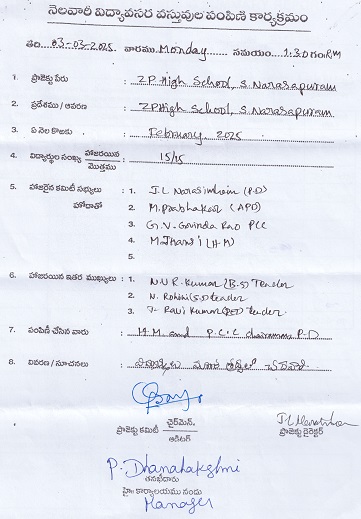 నెలవారి విద్యావసర వస్తువుల పంపిణి కార్యక్రమం
తది...03-03-2025. వారము Monday సమయం 1:30 గం PM
1. ప్రాజెక్టు పేరు : ZP High School, S. Narasapuram
2. ప్రదేశము / ఆవరణ : ZP High School, S. Narasapuram
3. ఏ నెల కొఱకు : February 2025
4. విద్యార్థుల సంఖ్య హాజరయిన / మొత్తము : 15/15
5. హాజరైన కమిటీ సభ్యులు : 1. J.L Narasimham (P.D)
హోదాతో 2. M. Prabhakar (APD)
3. G.V. Govinda Rao PCC
4. M. Jhansi (H.M)
5.
6. హాజరయిన ఇతర ముఖ్యులు : 1. N.V.R. Kumar (B.S) Tender
2. N. Rohini (S.S) tender
3. Ravi Kumar (PET) tender.
7. పంపిణీ చేసిన వారు : H.M. and P.C.C P.D
8. వివరణ / సూచనలు :
ప్రాజెక్టు కమిటీ చైర్‌మెన్, / ఆడిటర్
ప్రాజెక్టు డైరెక్టర్
P. Dhanalakshmi
తనఖీదారు
హై: కార్యాలయము నందు
Manager